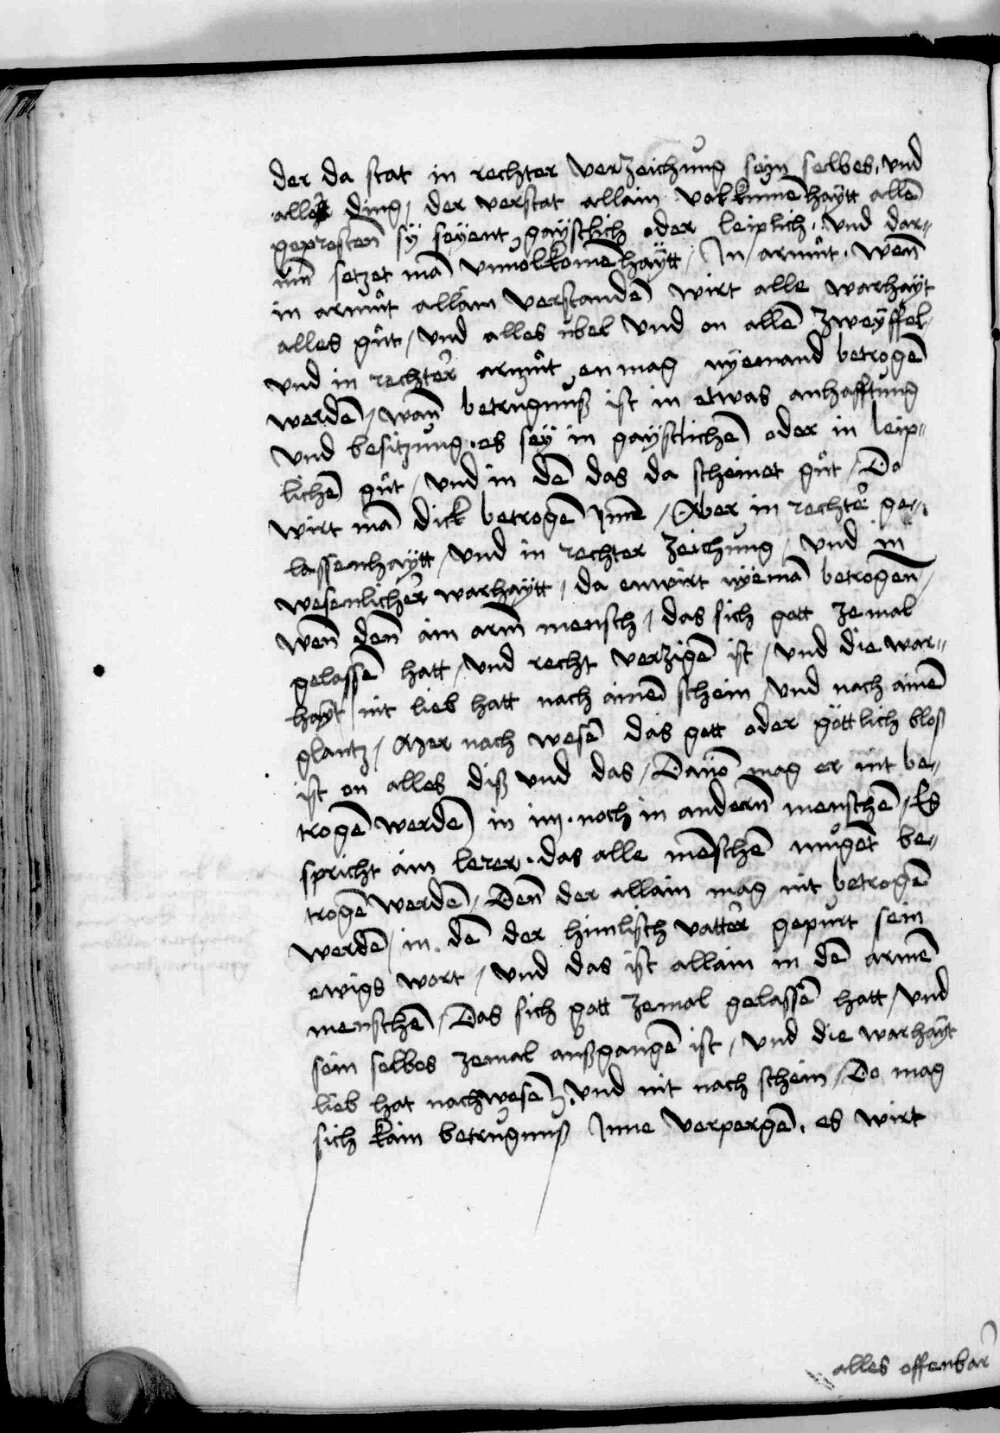 der da stat in rechter verzeichung sein selbes, vnd
aller ding / der verstat allain volkumēhaÿtt allē
geprostēn sÿ seÿent gaÿstlich oder leiplich. Vnd dar„
um̄ setzet mā vnuolkomēhaÿtt / In armůt. Wen̄
in armůt allain verstandē wirt alle warhaÿt
alles gůt / vnd alles übel vnd on allē zweÿffel
vnd in rechter armůt enmag nÿemand betrogē
werdē / wan̄ betrugnuß ist in etwas anhafftung
vnd besitzung. es seÿ in gaÿstlichē oder in leip„
lichē gůt / vnd in dē das da scheinet gůt / Do
wirt mā dick betrogē jnē / Aber in rechter ge„
lassenhaÿtt / vnd in rechter zeichung / vnd in
wesenlicher warhaÿtt / da enwirt nÿemā betrogen̄ /
wen̄ den̄ ain arm̄ mensch / das sich gott zemal
gelassē hatt / vnd recht verzigē ist / vnd die war„
haÿt nit lieb hatt nach ainē schein / vnd nach ainē
glantz / Mer nach wesē das gott oder göttlich bloß
ist on alles diß vnd das / Dauō mag er nit be„
trogē werdē in im. noch in andern̄ menschē / Es
spricht ain lerer. das alle mēschē mügēt be„
trogē werdē / Den̄ der allain mag nit betrogē
werdē in dē der himlisch vatter gepurt sein
ewigs wort / vnd das ist allain in dē armē
menschē / Das sich gott zemal gelassē hatt / vnd
sein selbes zemal außgangē ist / vnd die warhaÿt
lieb hat nach wesē / vnd nit nach schein / Do mag
sich kain betrugnuß Inne verpergē. es wirt
alles offenbar